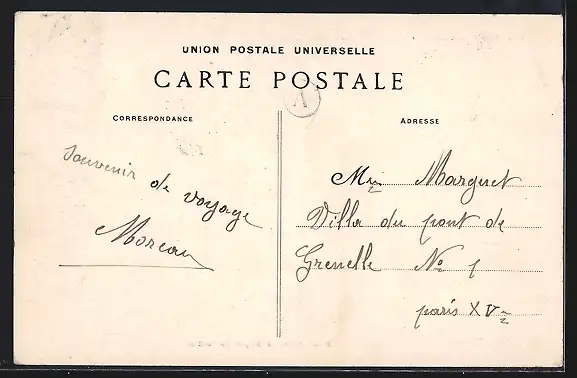 UNION POSTALE UNIVERSELLE
CARTE POSTALE
CORRESPONDANCE
ADRESSE
Souvenir de voyage
Moreau
Mme Marguet
Villa du pont de
Grenelle No 1
paris XVe